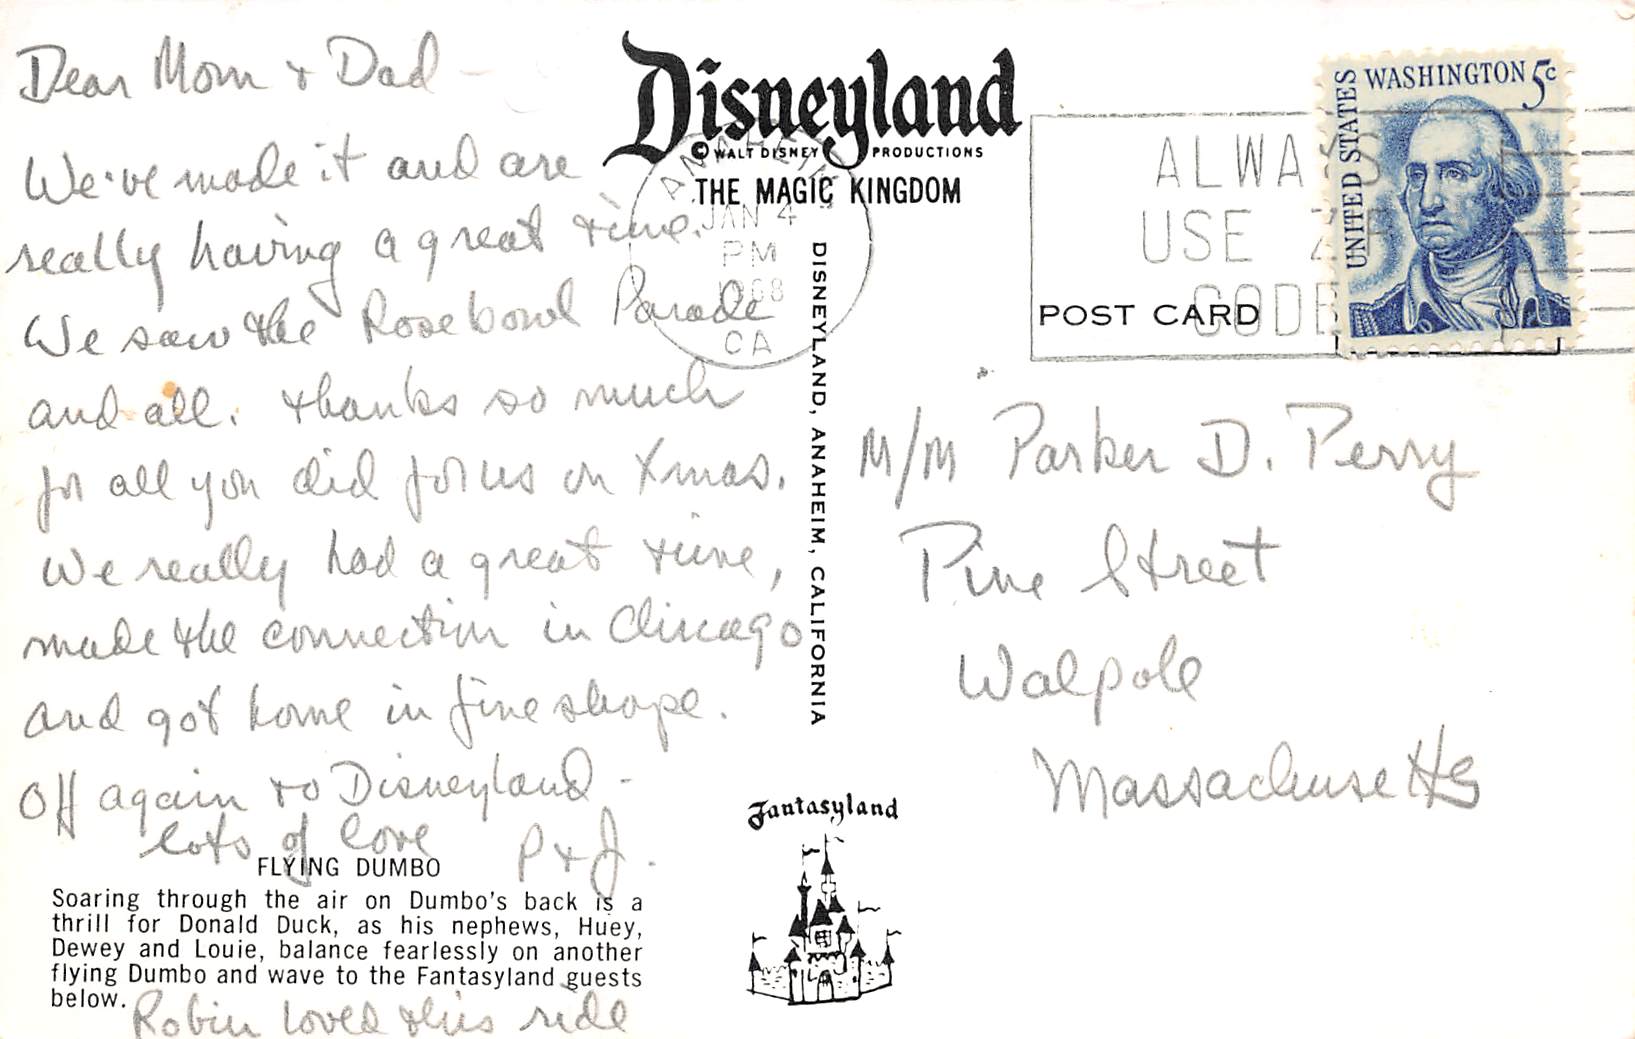 Dear Mom + Dad -
We've made it and are
really having a great time.
We saw the Rosebowl Parade
and all. thanks so much
for all you did for us on Xmas.
We really had a great time,
made the connection in Chicago
and got home in fine shape.
Off again to Disneyland -
lots of love P + J.
FLYING DUMBO
Soaring through the air on Dumbo's back is a
thrill for Donald Duck, as his nephews, Huey,
Dewey and Louie, balance fearlessly on another
flying Dumbo and wave to the Fantasyland guests
below.
Robin loved this ride
Disneyland
© WALT DISNEY PRODUCTIONS
THE MAGIC KINGDOM
ANAHEIM
JAN 4
PM
1968
CA
DISNEYLAND, ANAHEIM, CALIFORNIA
Fantasyland
ALWAYS
USE ZIP
CODE
POST CARD
UNITED STATES
WASHINGTON 5c
M/M Parker D. Perry
Pine Street
Walpole
Massachusetts